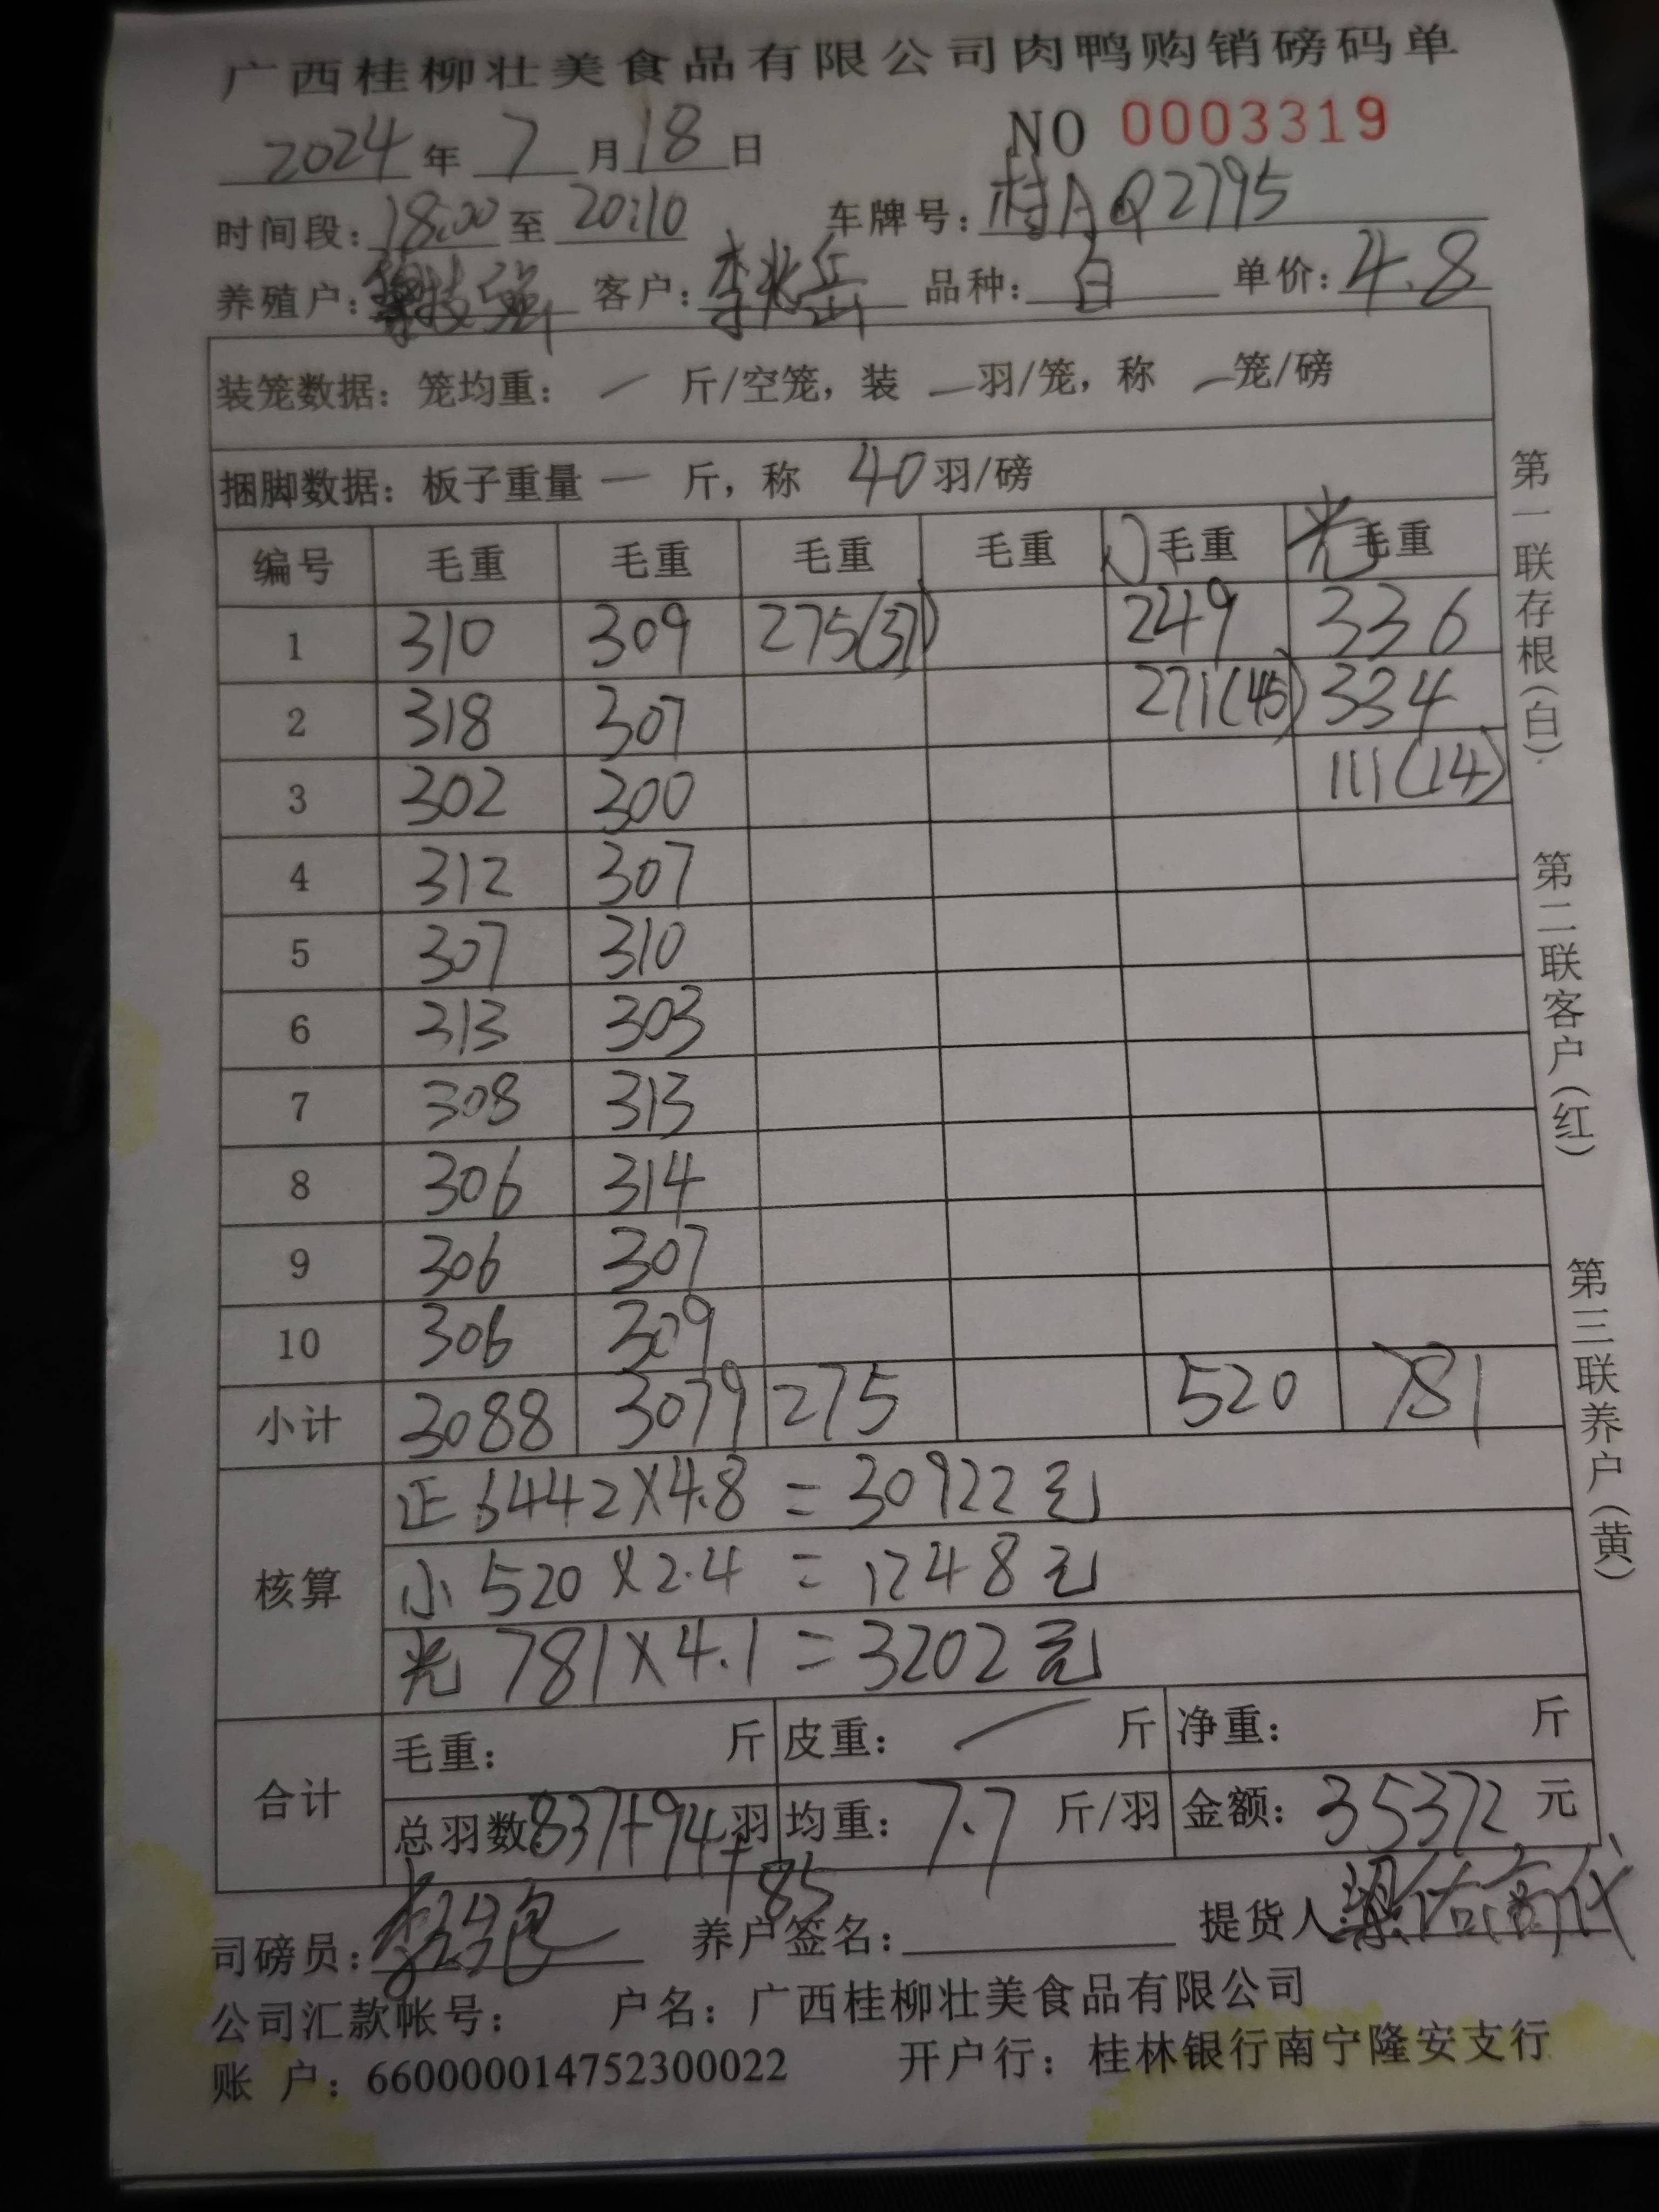 广西桂柳壮美食品有限公司肉鸭购销磅码单
2024年 7月18日 NO 0003319
时间段：18:00至 20:10 车牌号：桂AQ2795
养殖户： 客户：李兆岳 品种：白 单价：4.8
装笼数据：笼均重： — 斤/空笼，装 — 羽/笼，称 — 笼/磅
捆脚数据：板子重量 — 斤，称 40羽/磅
编号 毛重 毛重 毛重 毛重 小毛重 光毛重
1 310 309 275(37) 249 336
2 318 307 271(45) 334
3 302 300 111(14)
4 312 307
5 307 310
6 313 303
7 308 313
8 306 314
9 306 307
10 306 309
小计 3088 3079 275 520 781
核算
正6442×4.8=30922元
小 520×2.4=1248元
光 781×4.1=3202元
合计
毛重： 斤 皮重： — 斤 净重： 斤
总羽数：837+94+85羽 均重：7.7 斤/羽 金额：35372 元
司磅员： 养户签名： 提货人：代
公司汇款帐号： 户名：广西桂柳壮美食品有限公司
账 户：660000014752300022 开户行：桂林银行南宁隆安支行
第一联存根(白) 第二联客户(红) 第三联养户(黄)